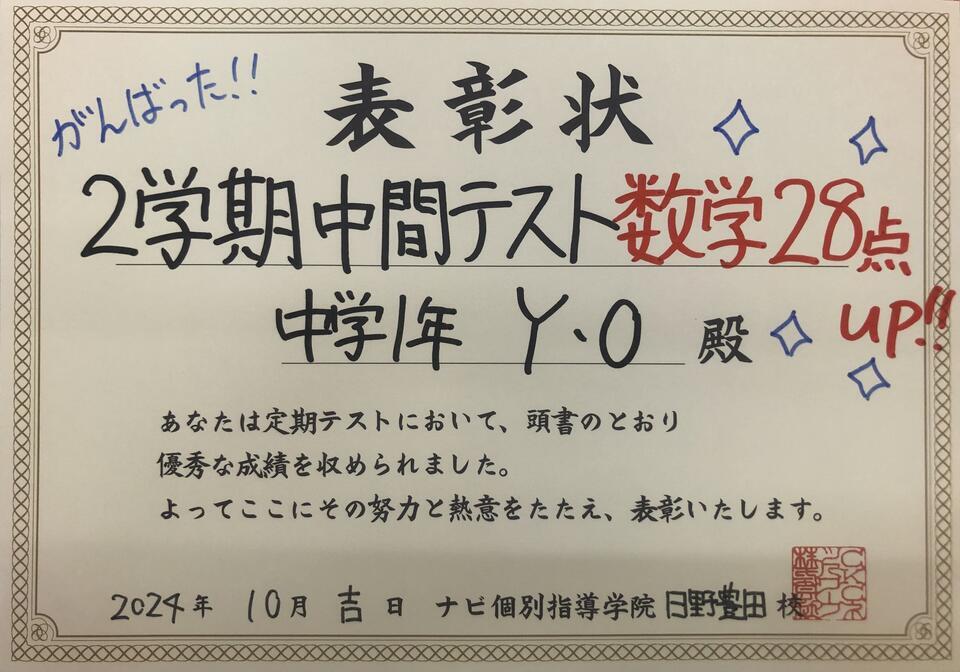 がんばった!!
表彰状
2学期中間テスト数学28点
UP!!
中学1年 Y・O 殿
あなたは定期テストにおいて、頭書のとおり
優秀な成績を収められました。
よってここにその努力と熱意をたたえ、表彰いたします。
2024年 10月 吉日 ナビ個別指導学院 日野豊田校